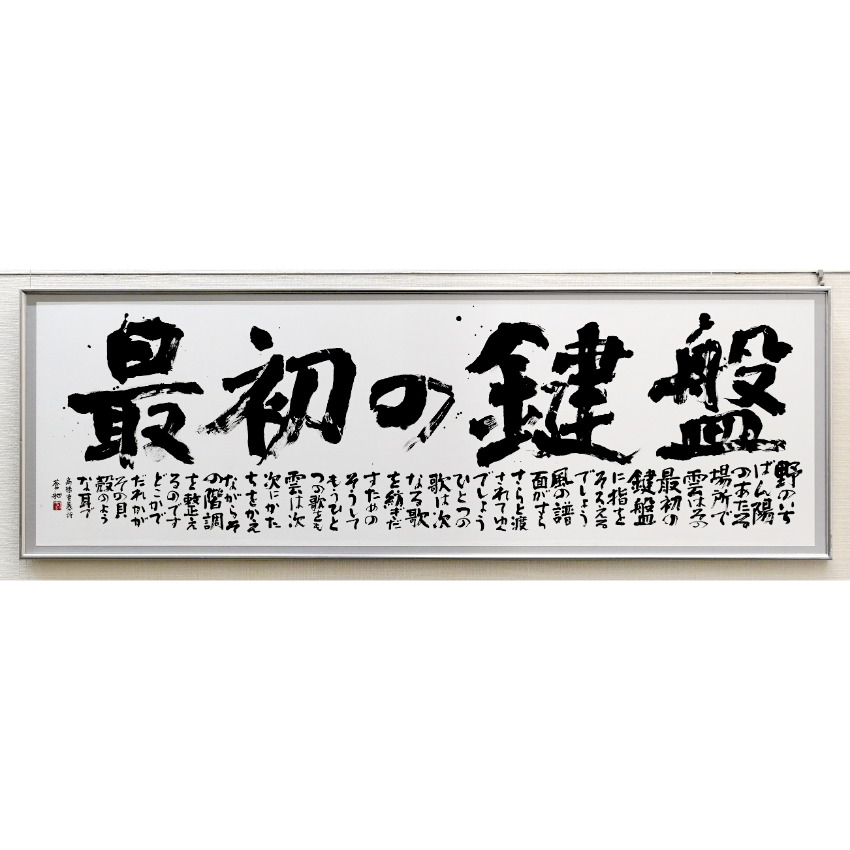 最初の鍵盤
野のいち
ばん陽
のあたる
場所で
雲はその
最初の
鍵盤
に指を
そろえる
でしょう
風の譜
面がさら
さらと渡
されてゆく
でしょう
ひとつの
歌は次
なる歌
を紡ぎだ
すための
そうして
もうひと
つの歌をも
雲は次
次にかた
ちをかえ
ながらそ
の階調
を整え
るのです
どこかで
だれかが
その貝
殻のよう
な耳で